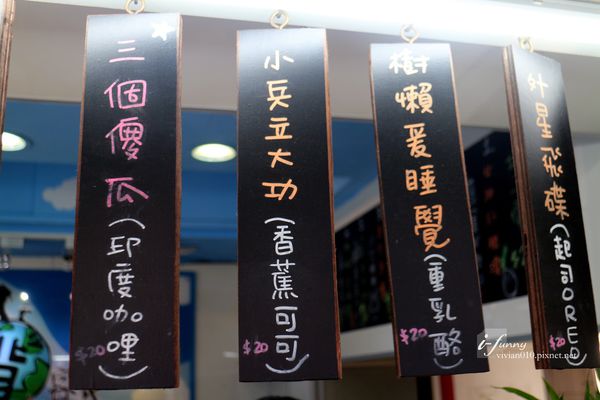 三個傻瓜(印度咖哩)
$20
小兵立大功(香蕉可可)
$20
樹懶爱睡覺(重乳酪)
$20
外星飛碟(起司OREO)
$20
i-funny
vivian010.pixnet.net